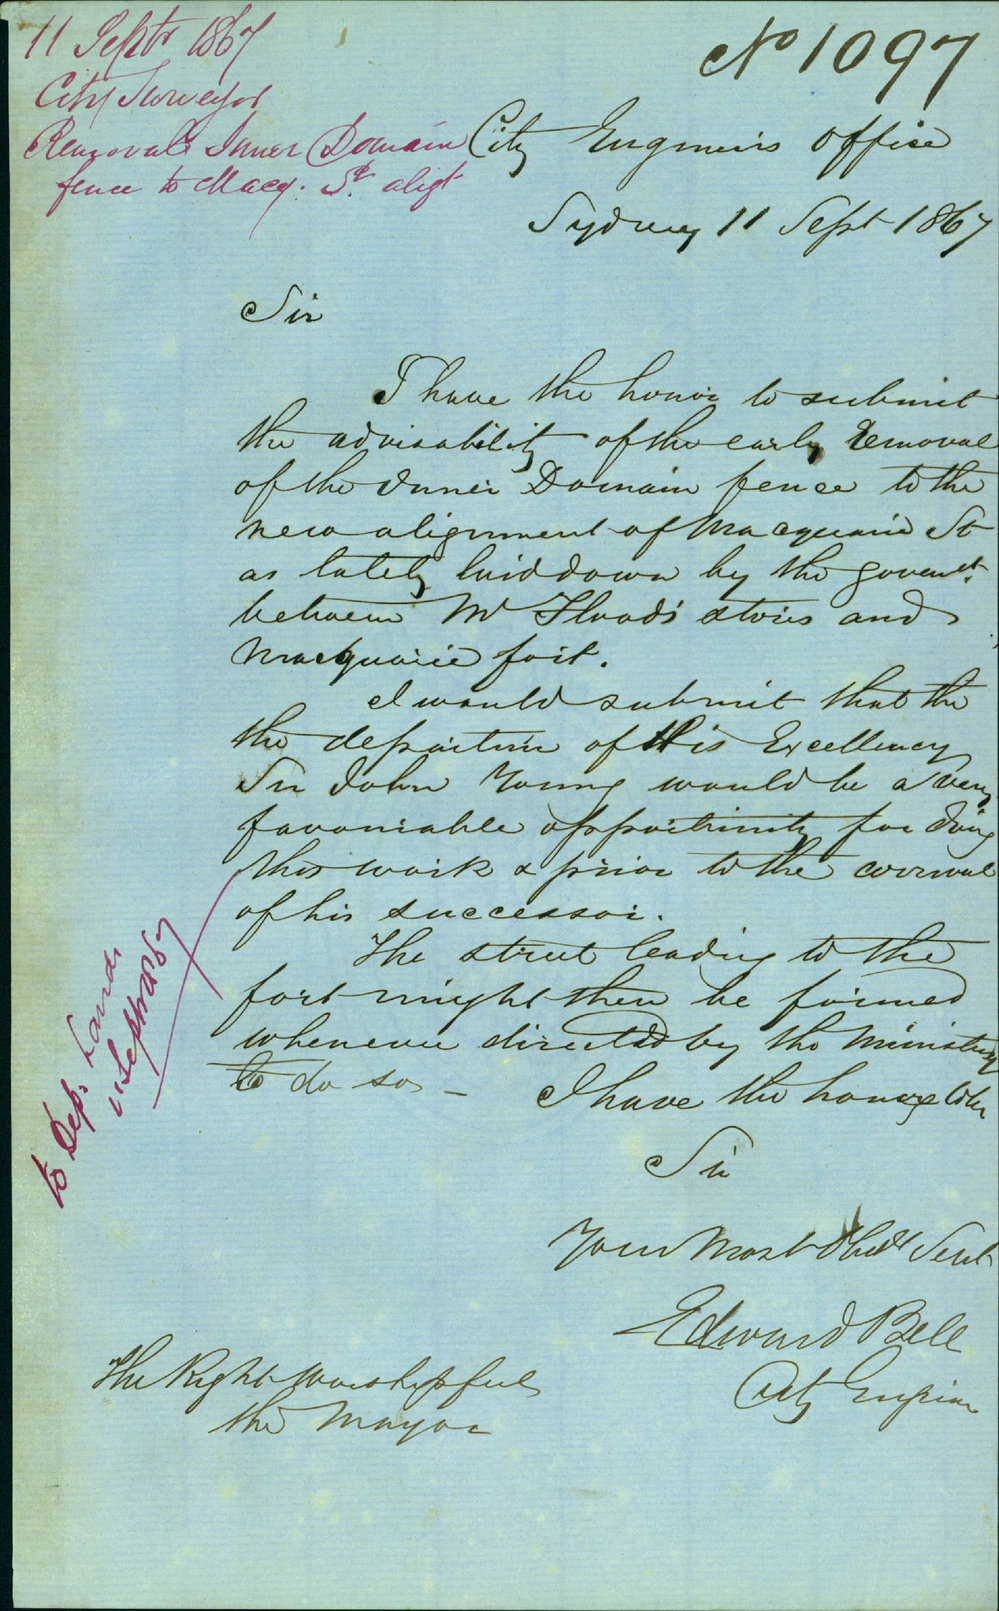 11 Septr 1867
City Surveyor
Removal Inner Domain
fence to Macq. St. aligt
No 1097
City Engineers Office
Sydney 11 Sept 1867
Sir
I have the honor to submit
the advisability of the early removal
of the Inner Domain fence to the
new alignment of Macquarie St
as lately laid down by the Governt.
between Mr Floods stores and
Macquarie fort.
I would submit that the
the departure of His Excellency
Sir John Young would be a very
favourable opportunity for doing
this work & prior to the arrival
of his successor.
The street leading to the
fort might then be formed
whenever directed by the Ministry
to do so –
I have the honor to be
Sir
Your Most Obdt Servt
Edward Bell
City Engineer
The Right Worshipful
the Mayor
to Dep. Lands
11 Septr 1867